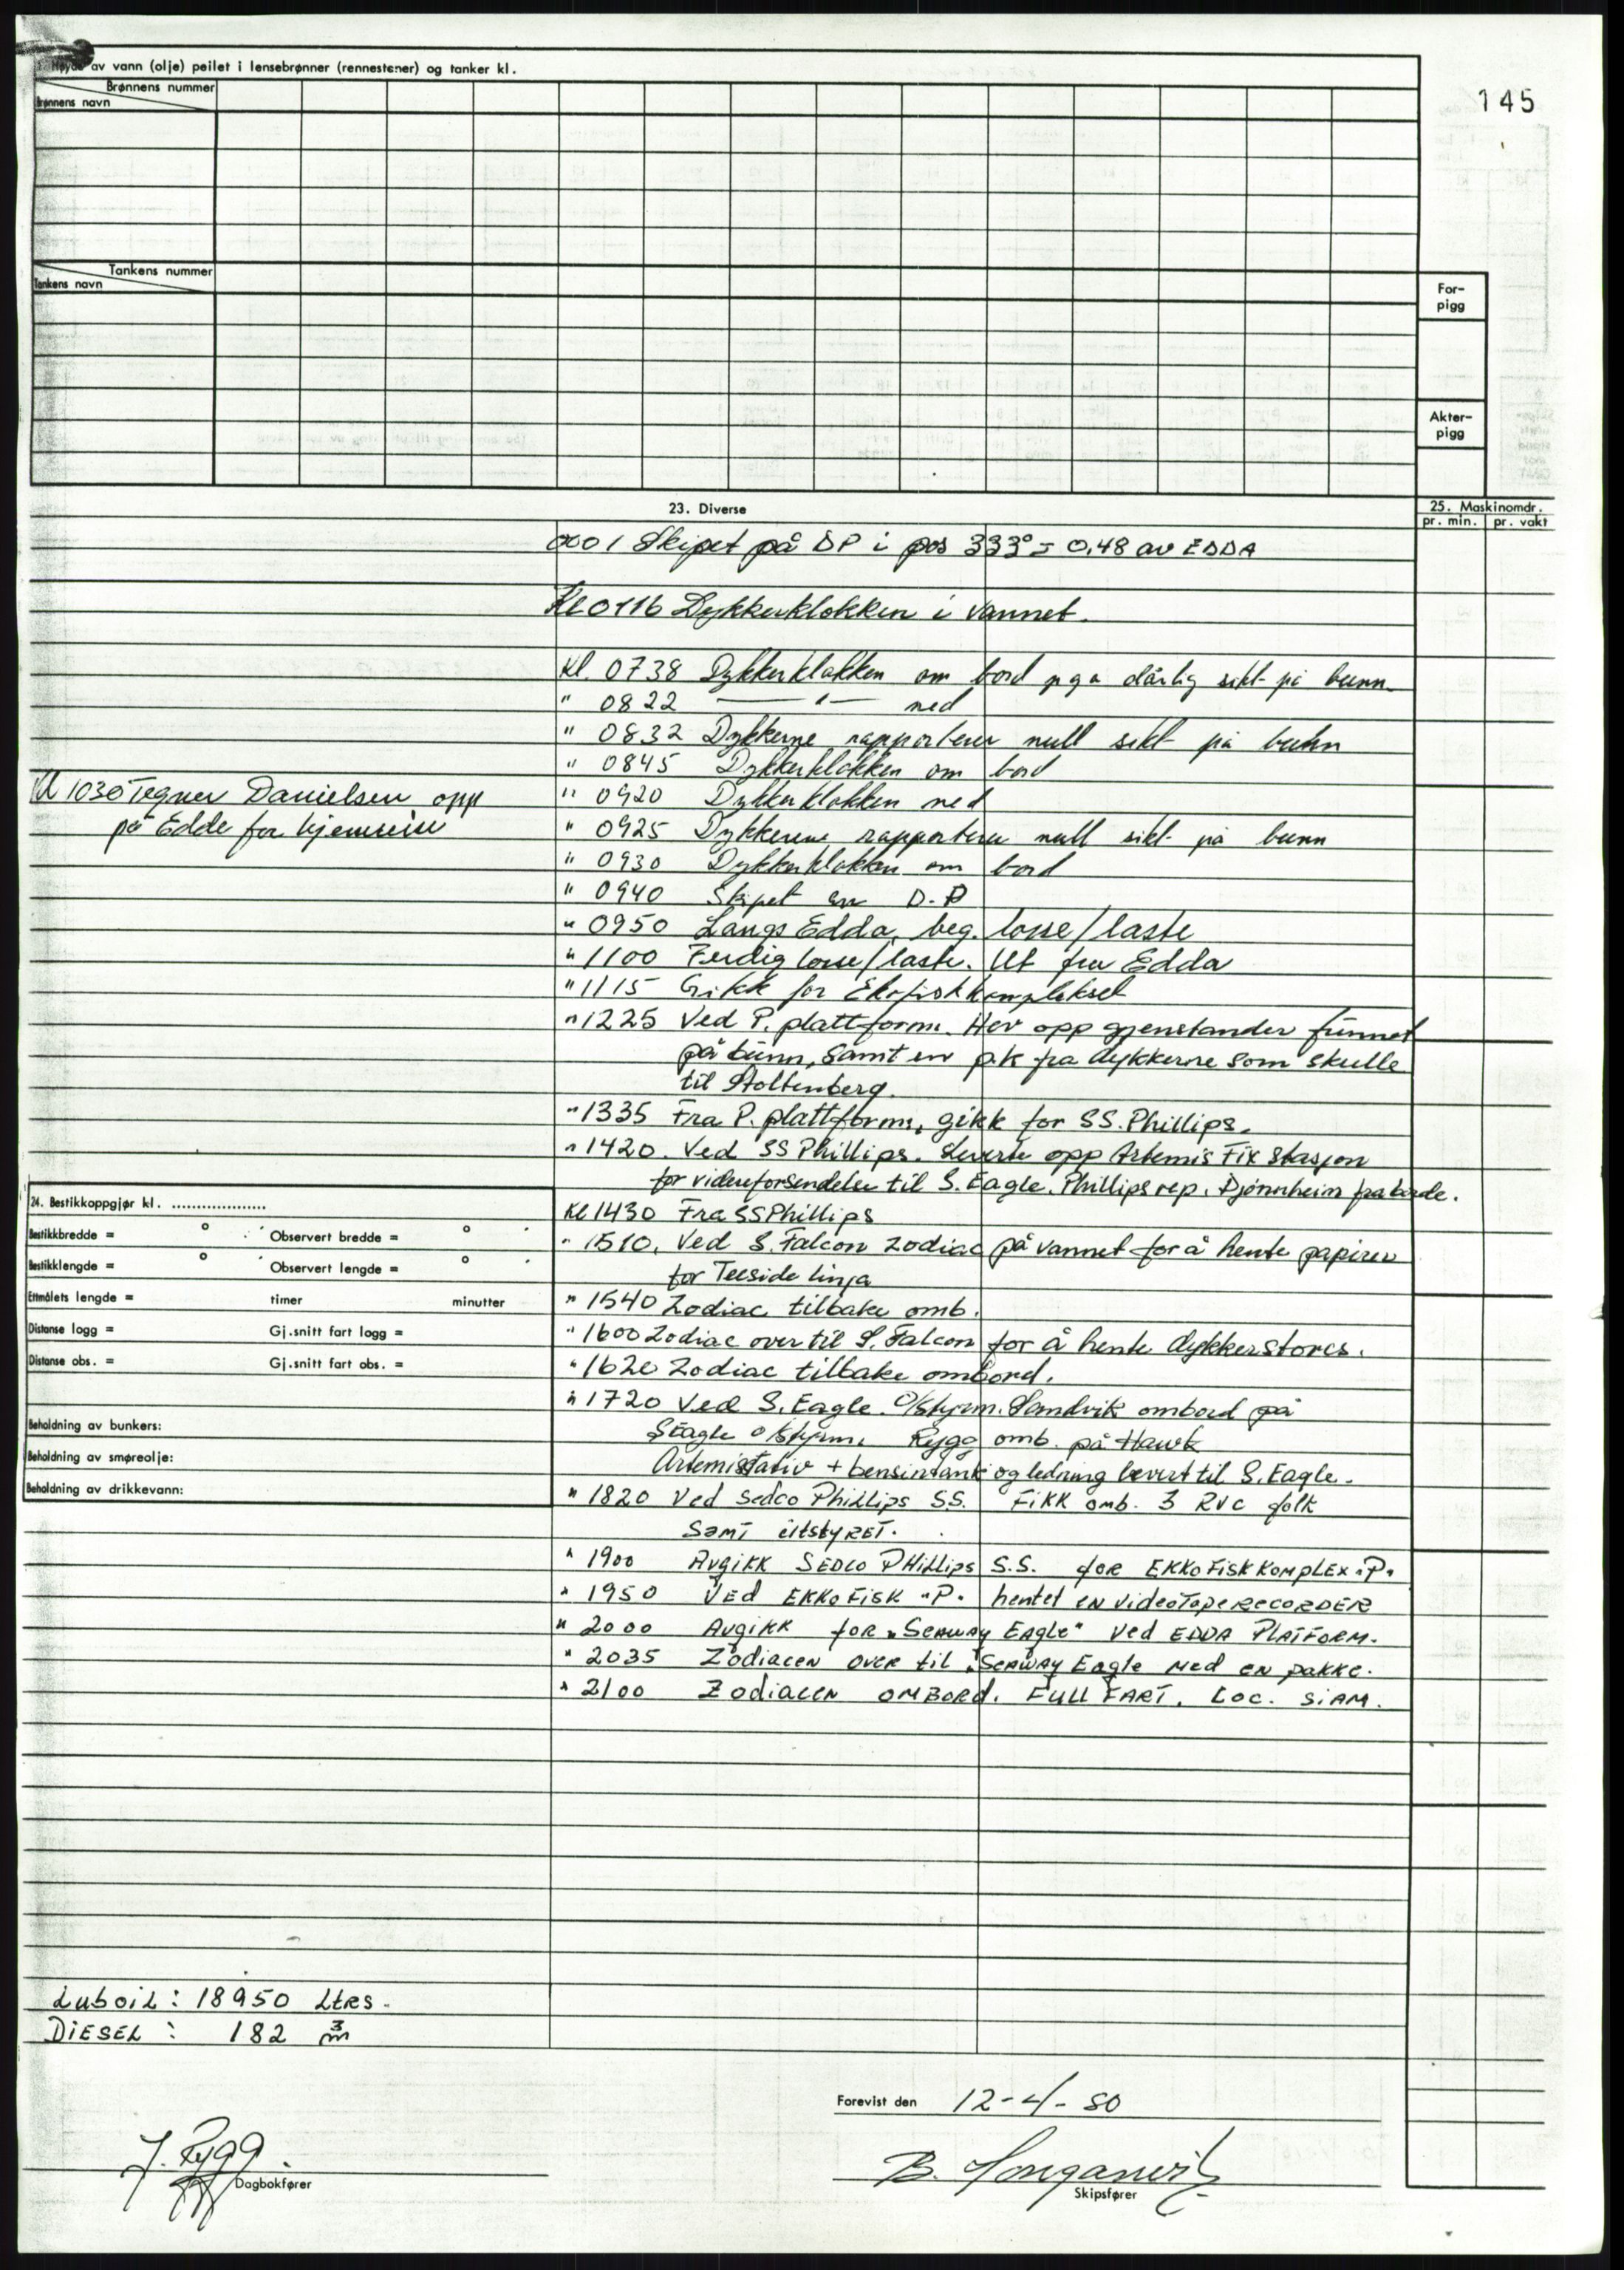 145
Høyde av vann (olje) peilet i lensebrønner (rennestener) og tanker kl.
Brønnens nummer
Brønnens navn
Tankens nummer
Tankens navn
For-
pigg
Akter-
pigg
23. Diverse
25. Maskinomdr.
pr. min. pr. vakt
0001 Skipet på DP i pos 333° = 0,48 av EDDA
Kl 0116 Dykkerklokken i vannet.
Kl. 0738 Dykkerklokken om bord p g a dårlig sikt på bunn
" 0822 — " — ned
" 0832 Dykkerne rapporterer null sikt på bunn
" 0845 Dykkerklokken om bord
Kl 1030 Tegner Danielsen opp
på Edda for hjemreise
" 0920 Dykkerklokken ned
" 0925 Dykkerene rapporterer null sikt på bunn
" 0930 Dykkerklokken om bord
" 0940 Skipet av D.P
" 0950 Langs Edda, beg. losse/laste
" 1100 Ferdig losse/laste. Ut fra Edda
" 1115 Gikk for Ekofiskkomplekset
" 1225 Ved P. plattform. Hev opp gjenstander funnet
på bunn, samt en pk fra dykkerne som skulle
til Stoltenberg.
" 1335 Fra P. plattform, gikk for SS. Phillips.
" 1420. Ved SS Phillips. Leverte opp Artemis Fix stasjon
for videreforsendelse til S. Eagle. Phillips rep. Djønnheim fra borde.
Kl 1430 Fra SS Phillips
" 1510. Ved S. Falcon Zodiac på vannet for å hente papirer
for Teeside linja
" 1540 Zodiac tilbake omb.
" 1600 Zodiac over til S. Falcon for å hente dykkerstores.
" 1620 Zodiac tilbake ombord.
" 1720 Ved S. Eagle. O/styrm. Sandvik ombord på
S Eagle O/styrm. Rygg omb. på Hawk
Artemisstativ + bensintank og ledning levert til S. Eagle.
" 1820 Ved Sedco Phillips S.S. FiKK omb. 3 RVC folk
SamT utstyRET.
" 1900 AvgiKK SEDCO PHillips S.S. foR EKKoFiskKomplEx "P"
" 1950 VEd EKKoFiSK "P" hentet EN videoTapeRECORDER
" 2000 AvgiKK foR "SEAWAY EAglE" Ved EDDA PlATFoRM.
" 2035 Zodiacen over til "SEAWAY Eagle med en pakke.
" 2100 Zodiacen OMBORd. FULL FART. Loc. SiAM.
24. Bestikkoppgjør kl. ...................
Bestikkbredde = ° ′ Observert bredde = ° ′
Bestikklengde = ° ′ Observert lengde = ° ′
Ettmålets lengde = timer minutter
Distanse logg = Gj.snitt fart logg =
Distanse obs. = Gj.snitt fart obs. =
Beholdning av bunkers:
Beholdning av smøreolje:
Beholdning av drikkevann:
Luboil: 18950 LtRS.
DiESEL: 182 m³
Forevist den 12-4-80
J. Rygg
Dagbokfører
B.
Skipsfører